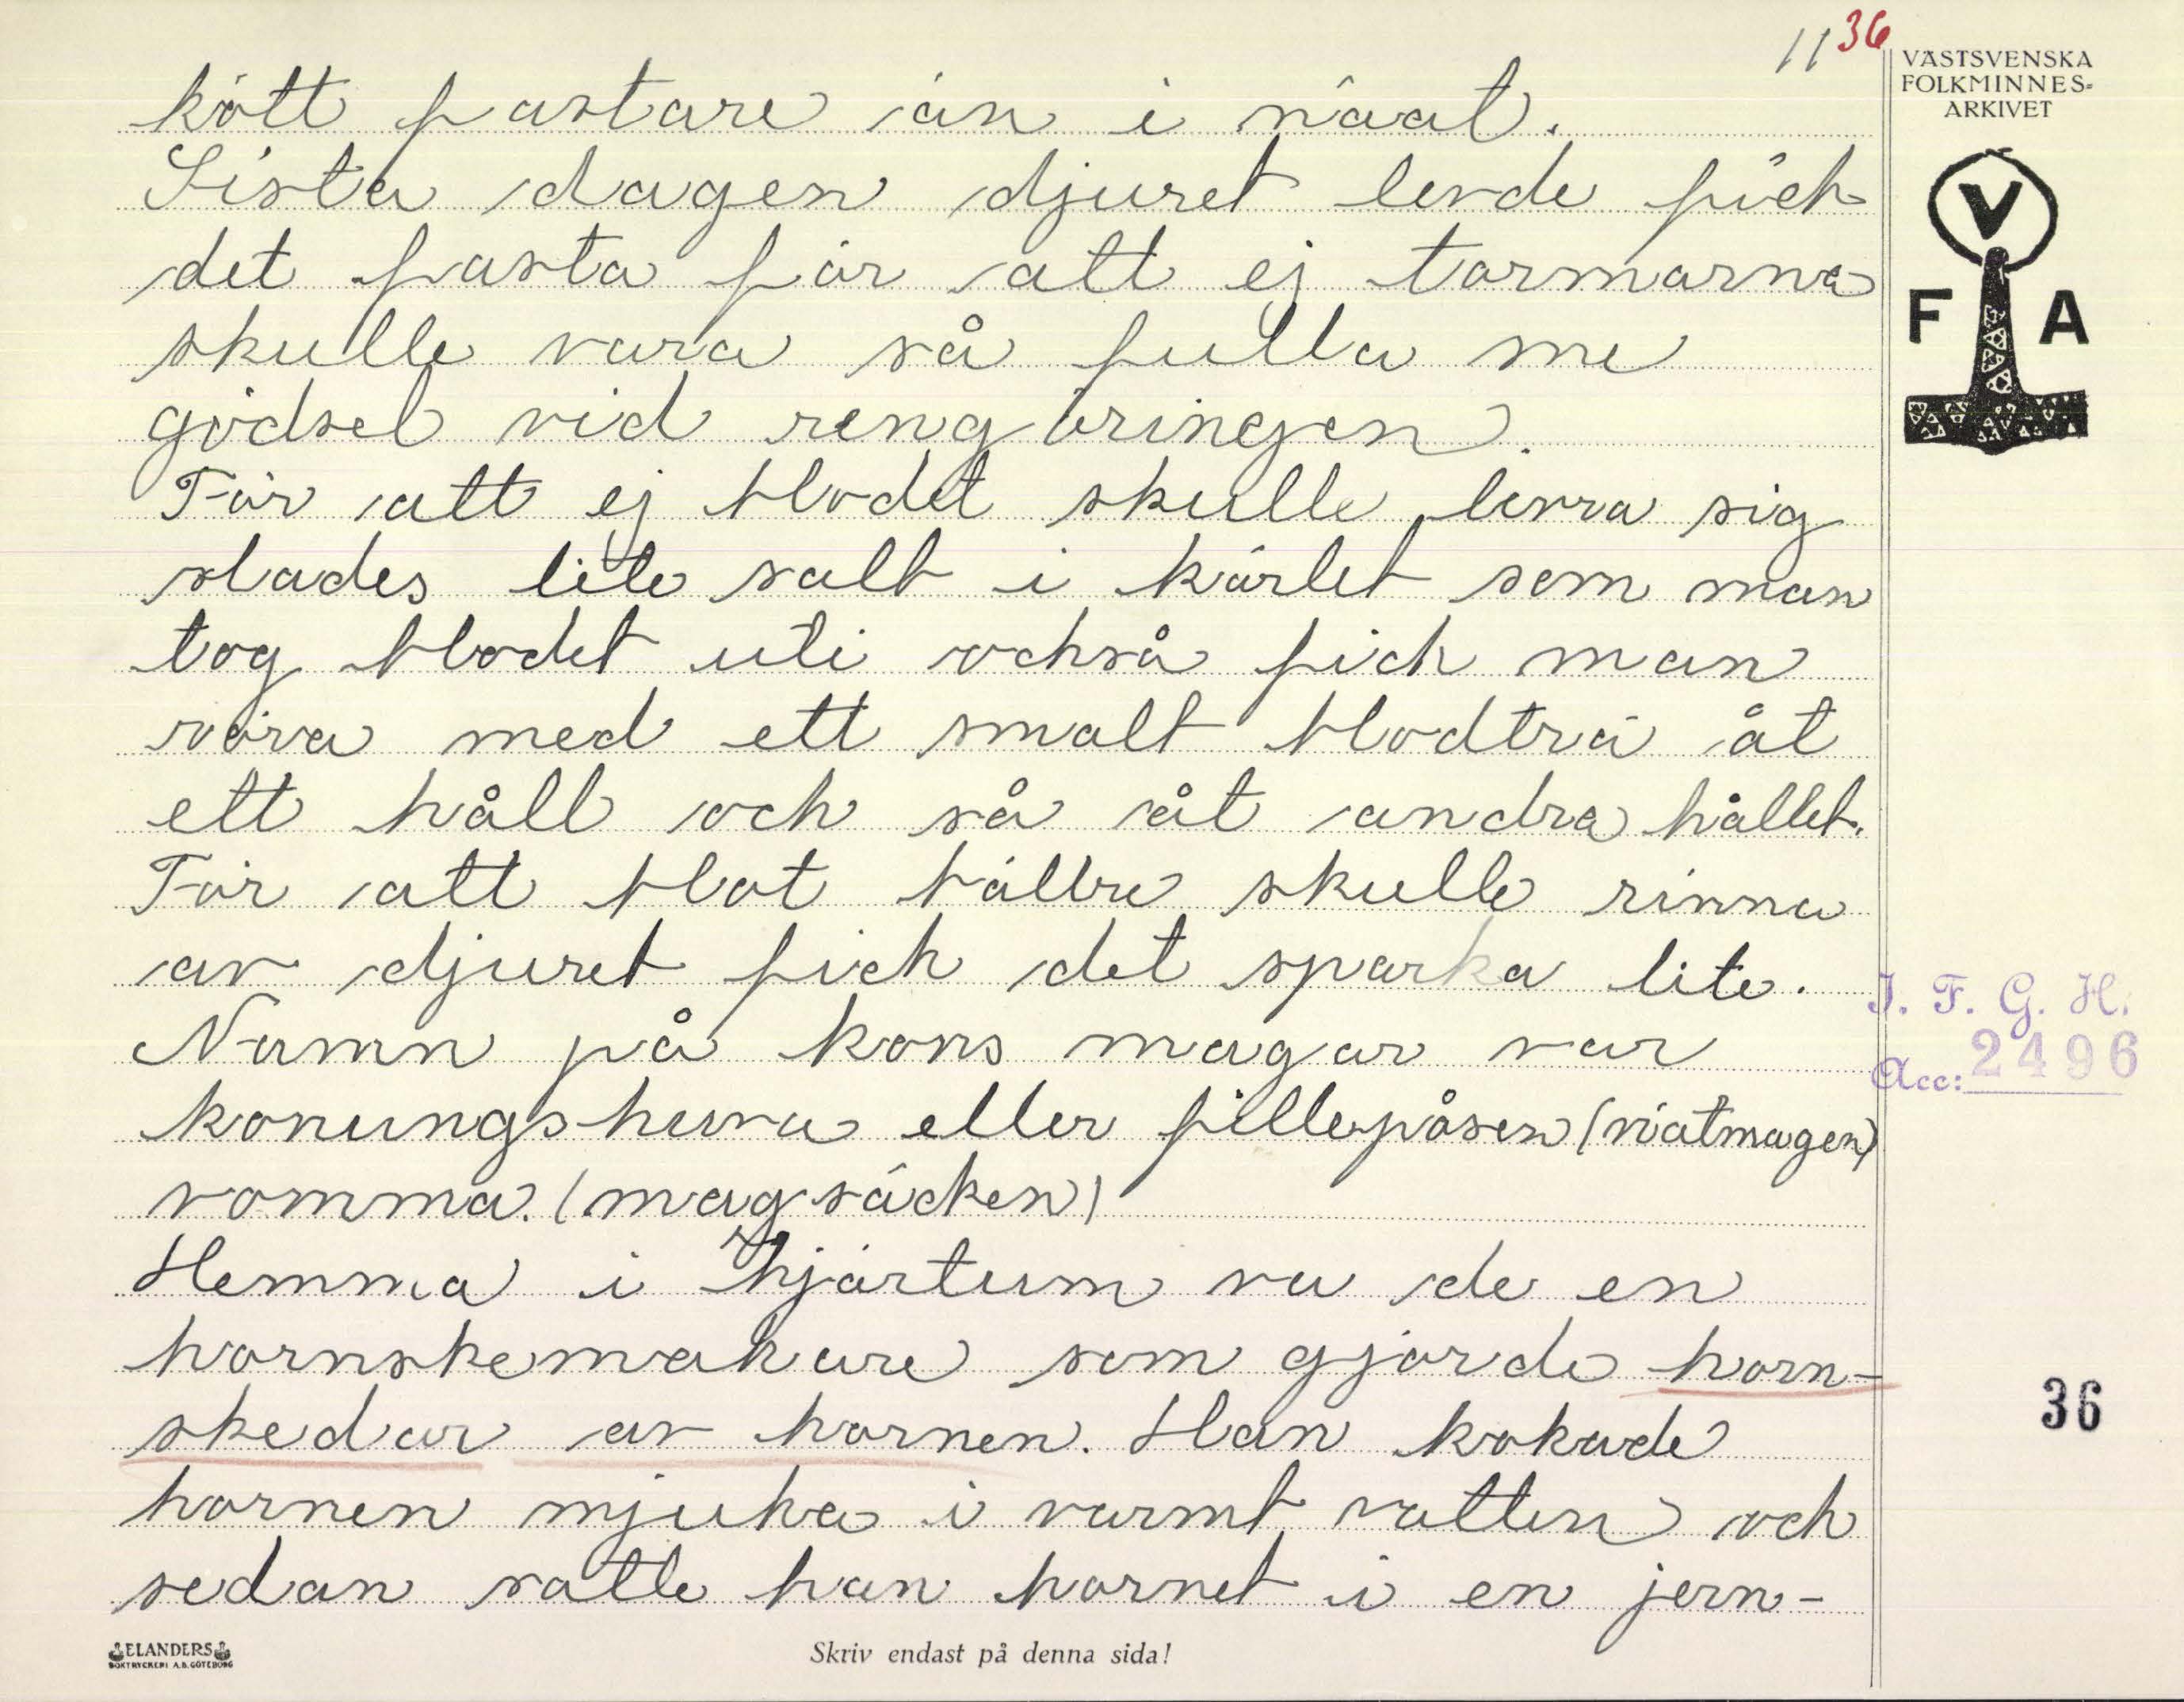 11 36
VÄSTSVENSKA
FOLKMINNES-
ARKIVET
V
F A
kött fastare än i näat.
Sista dagen djuret levde fick
det fasta för att ej tarmarna
skulle vara så fulla me
gödsel vid rengöringen.
För att ej blodet skulle levra sig
slades lite salt i kärlet som man
tog blodet uti också fick man
röra med ett smalt blodträ åt
ett håll och så åt andra hållet.
För att blot bättre skulle rinna
av djuret fick det sparka lite.
Namn på kons magar var
konungshuva eller fillepåsen (nätmagen)
vomma. (magsäcken)
Hemma i Hjärtum va de en
hornskemakare som gjorde horn-
skedar av hornen. Han kokade
hornen mjuka i varmt vatten och
sedan satte han hornet i en jern-
I. F. G. H.
Acc: 2496
36
ELANDERS
BOKTRYCKERI A.B. GÖTEBORG
Skriv endast på denna sida!